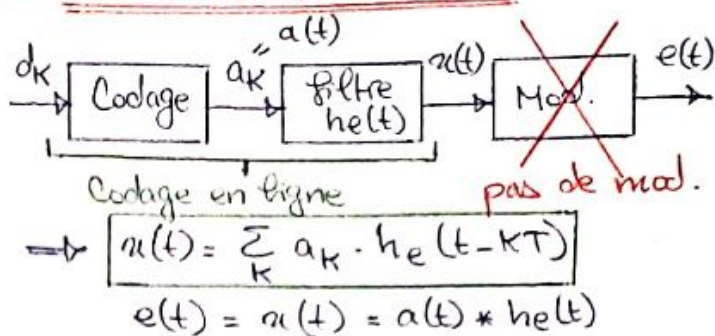 d_K Codage a_K " a(t) filtre he(t) x(t) Mod. e(t)
Codage en ligne
pas de mod.
⇒ x(t) = Σ_K a_K . he (t-KT)
e(t) = x(t) = a(t) * he(t)